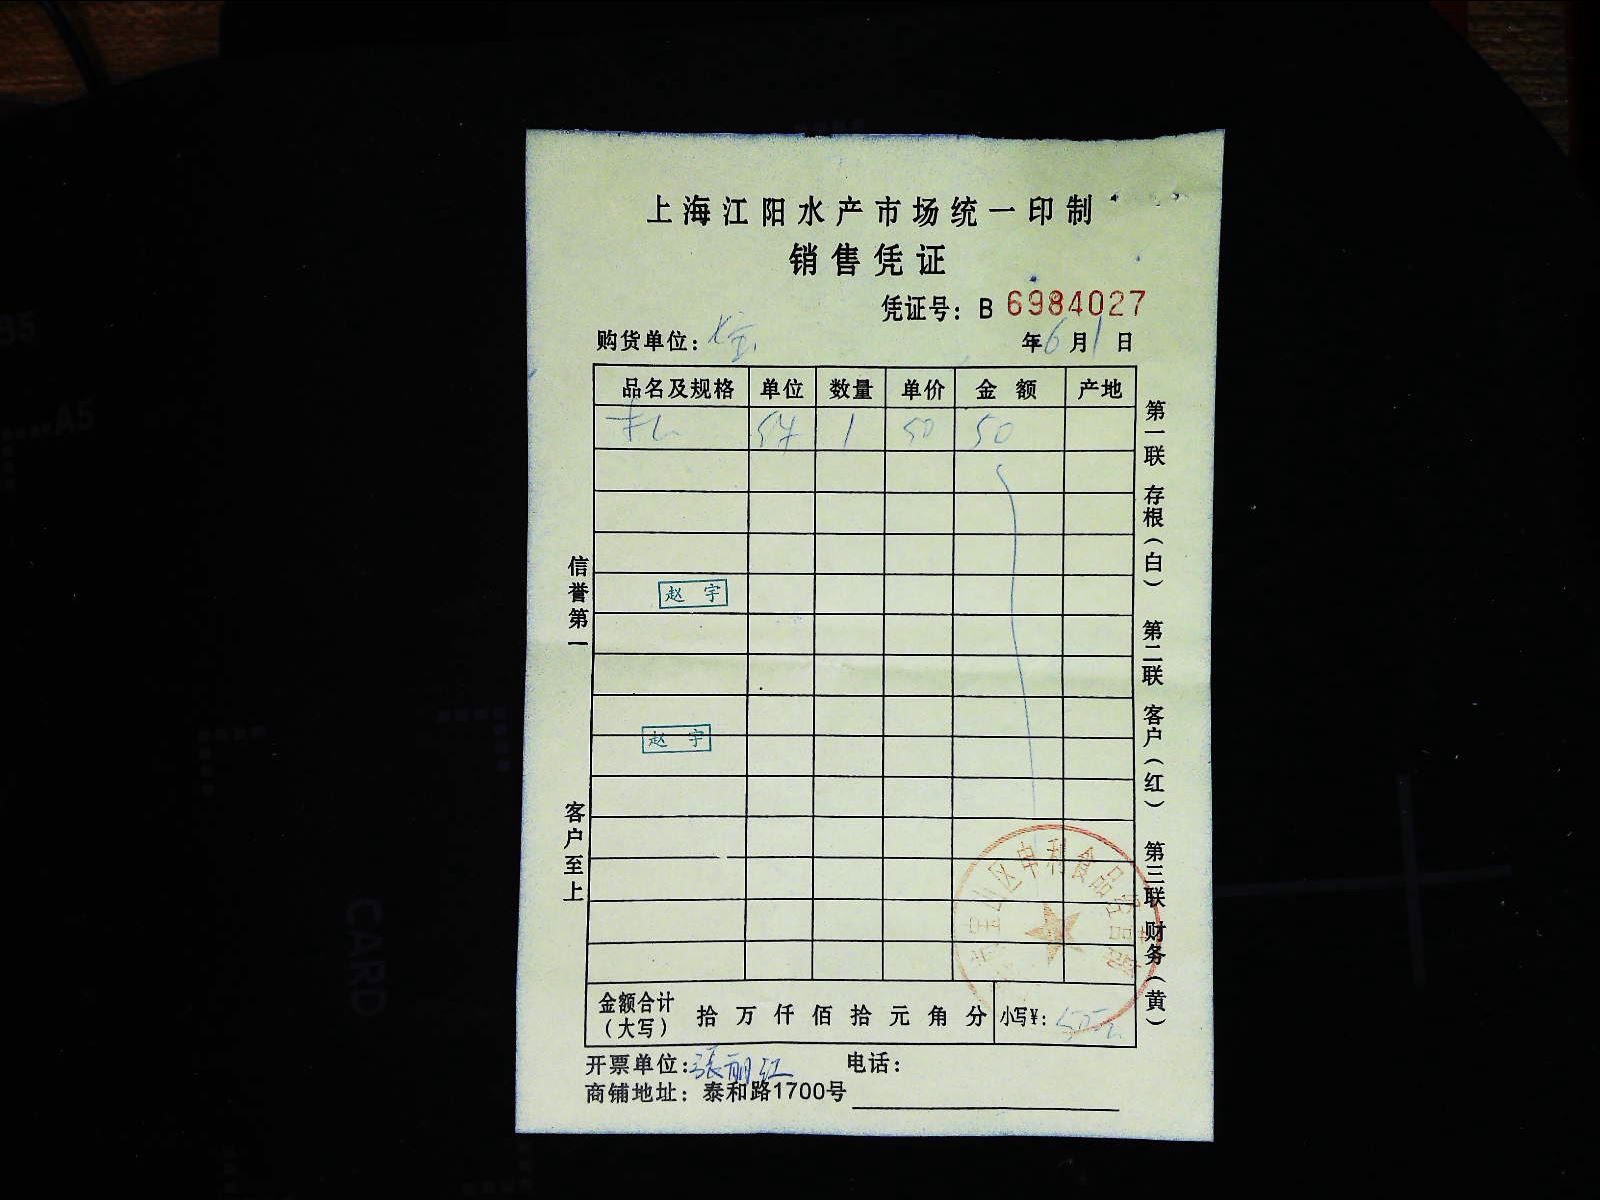 上海江阳水产市场统一印制
销售凭证
凭证号：B 6984027
购货单位：
年6月1日
品名及规格 单位 数量 单价 金额 产地
1 50 50
赵宇
赵宇
信誉第一
客户至上
第一联 存根（白） 第二联 客户（红） 第三联 财务（黄）
宝山区申利食品经营
金额合计（大写） 拾 万 仟 佰 拾 元 角 分 小写¥：50元
开票单位：张丽红 电话：
商铺地址：泰和路1700号
CARD
A5
B5